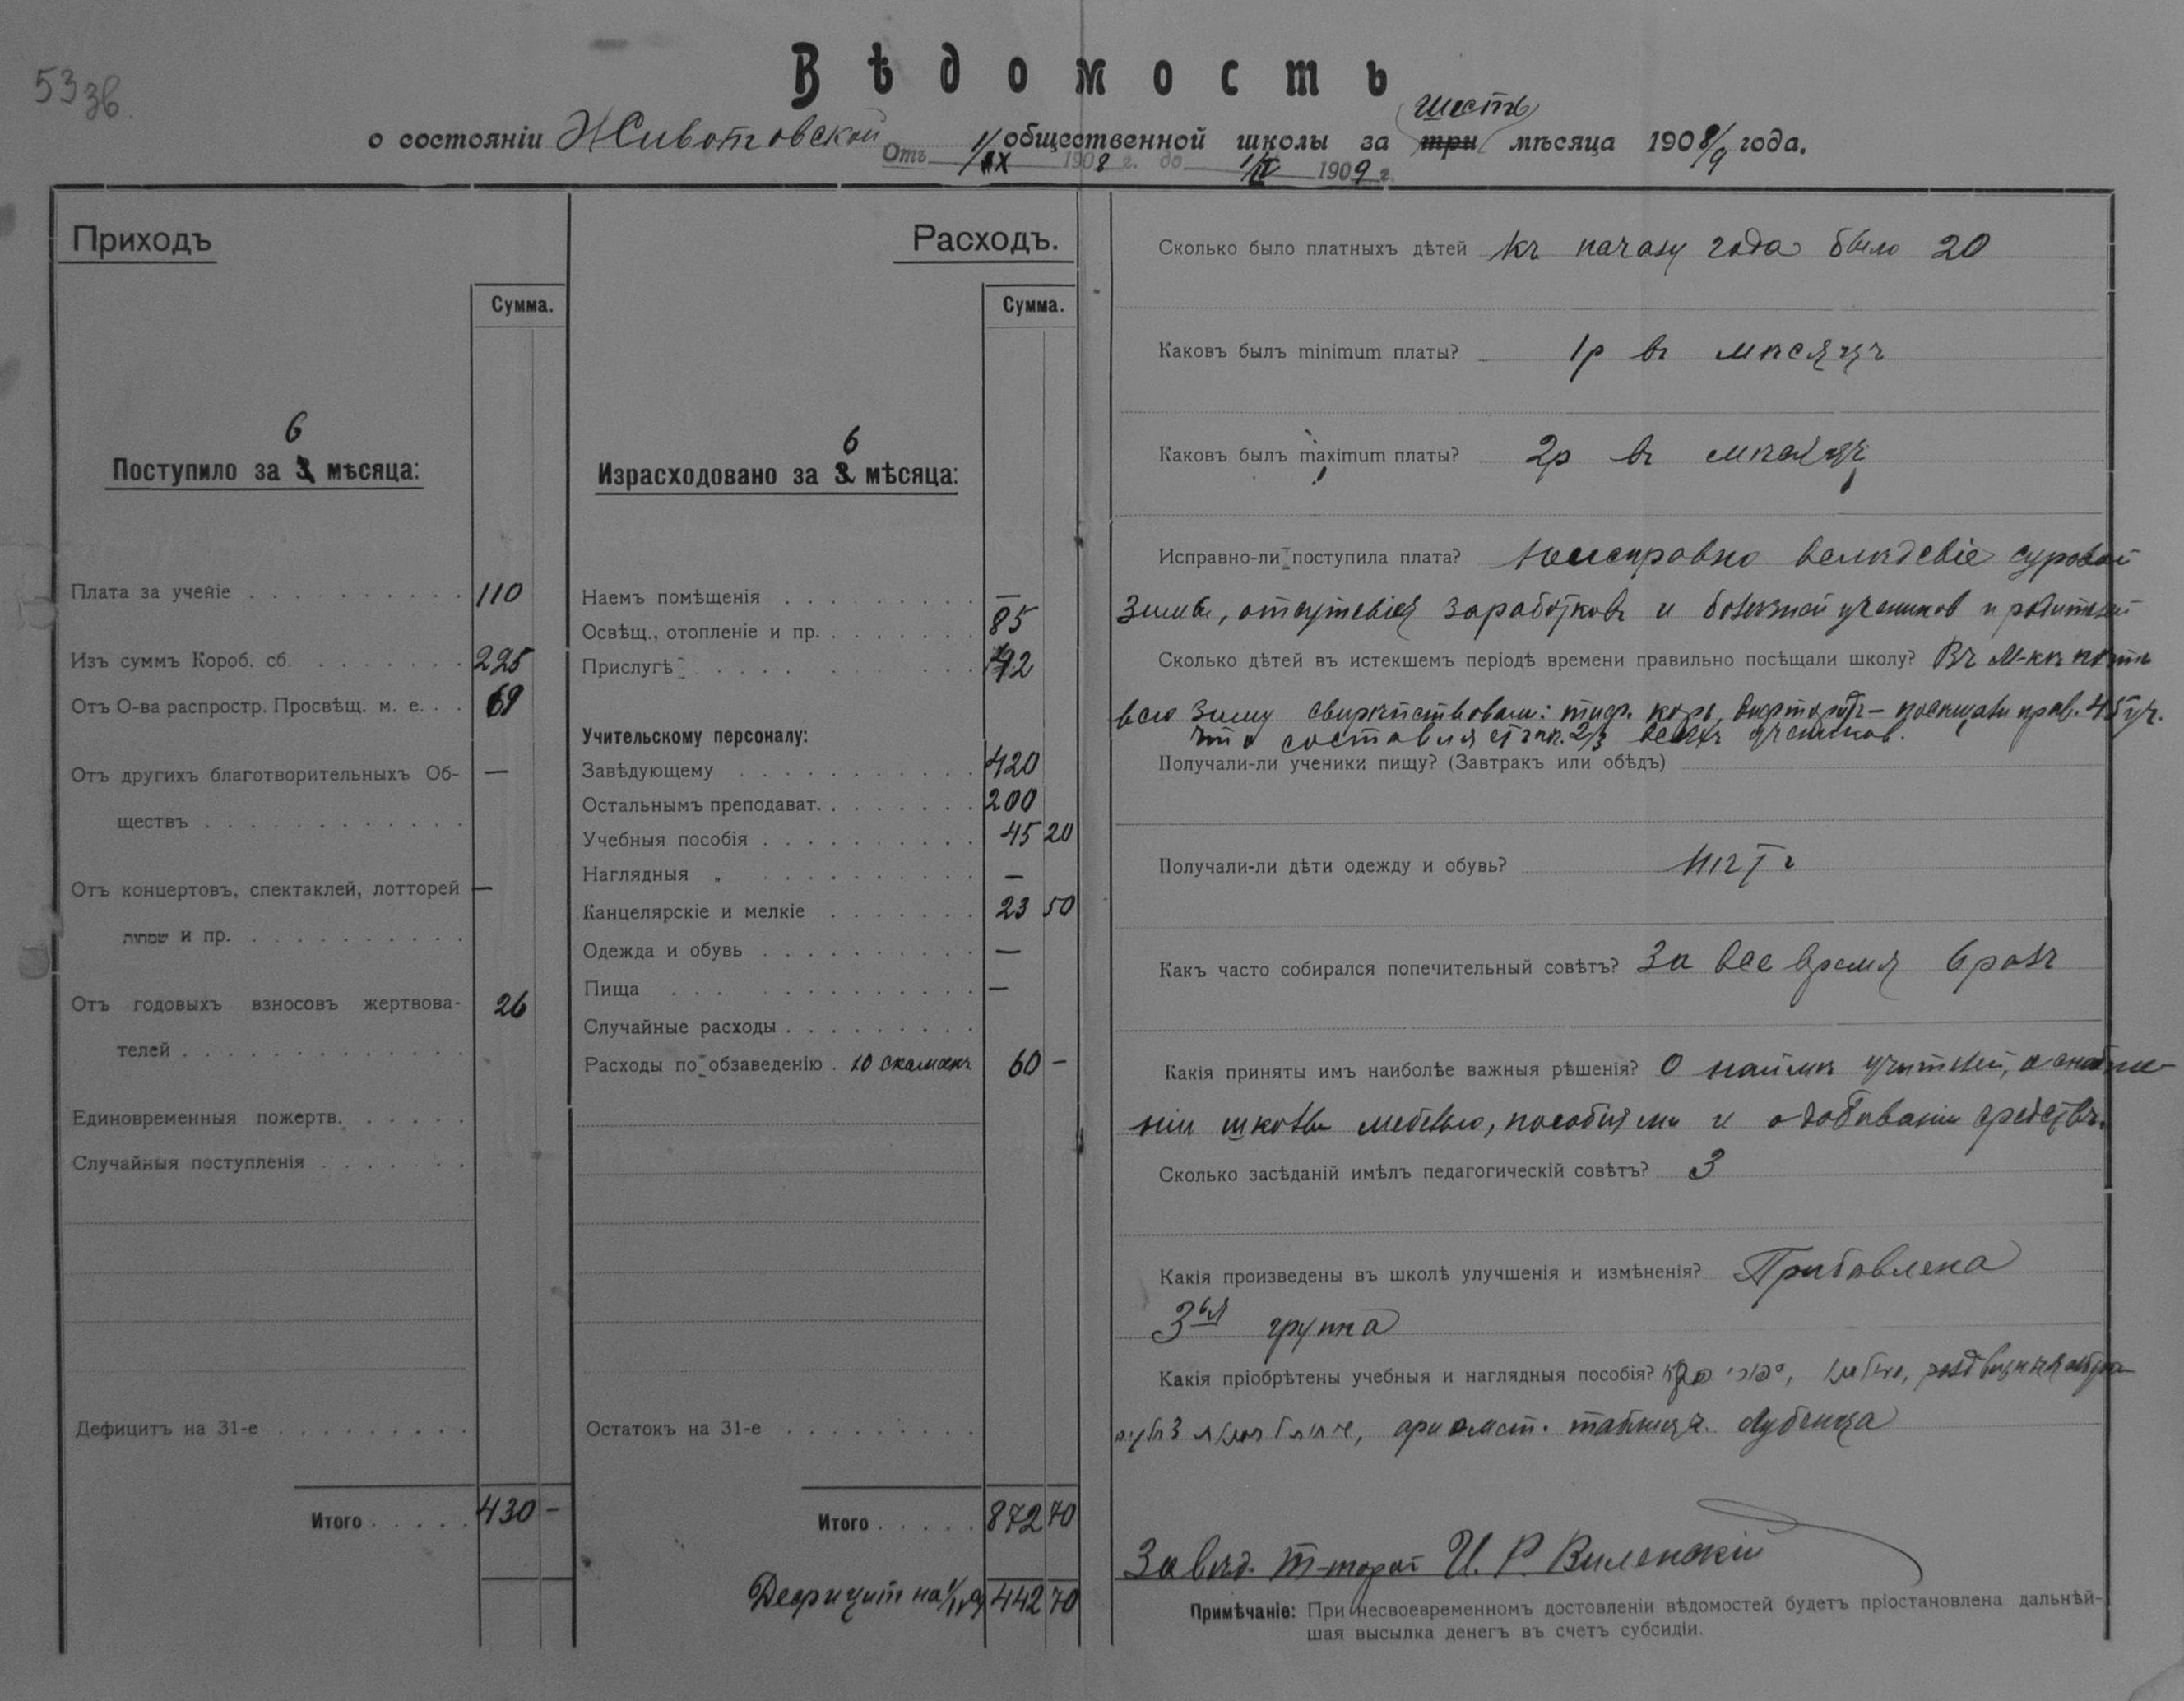 53 зв.
Вѣдомость
о состояніи Животовской общественной школы за три шесть мѣсяца 1908/9 года.
Отъ 1/IX 1908 г. до 1/IV 1909 г.
Приходъ
Сумма.
Поступило за 3 6 мѣсяца:
Плата за ученіе . . . . . . . . . . 110
Изъ суммъ Короб. сб. . . . . . . . 225
Отъ О-ва распростр. Просвѣщ. м. е. . . 69
Отъ другихъ благотворительныхъ Об- —
ществъ . . . . . . . . . . . .
Отъ концертовъ, спектаклей, лотторей —
שמחות и пр. . . . . . . . . . .
Отъ годовыхъ взносовъ жертвова- 26
телей . . . . . . . . . . . . .
Единовременныя пожертв. . . . . .
Случайныя поступленія . . . . . . .
Дефицитъ на 31-е . . . . . . . . .
Итого . . . . . 430 —
Расходъ.
Сумма.
Израсходовано за 3 6 мѣсяца:
Наемъ помѣщенія . . . . . . . . . —
Освѣщ., отопленіе и пр. . . . . . . . 85
Прислугѣ . . . . . . . . . .
Учительскому персоналу:
Завѣдующему . . . . . . . . . . . 420
Остальнымъ преподават. . . . . . . . 200
Учебныя пособія . . . . . . . . . . 45 20
Наглядныя „ . . . . . . . . . . —
Канцелярскіе и мелкіе . . . . . . . 23 50
Одежда и обувь . . . . . . . . . . —
Пища . . . . . . . . . . . . . —
Случайные расходы . . . . . . . . .
Расходы по обзаведенію . 10 скамеекъ 60 —
Остатокъ на 31-е . . . . . . . . .
Итого . . . . . 872 70
Дефицитъ на 442 70
Сколько было платныхъ дѣтей Къ началу года было 20
Каковъ былъ minimum платы? 1р въ мѣсяцъ
Каковъ былъ maximum платы? 2р въ мѣсяцъ
Исправно-ли поступила плата? Неисправно вслѣдствіе суровой
зимы, отсутствія заработковъ и болѣзней учениковъ и родителей
Сколько дѣтей въ истекшемъ періодѣ времени правильно посѣщали школу? Въ м-кѣ почти
всю зиму свирѣпствовали: тиф. корь, дифторитъ — посѣщали прав. 45 уч.
что составляетъ 2/3 всѣхъ учениковъ.
Получали-ли ученики пищу? (Завтракъ или обѣдъ)
Получали-ли дѣти одежду и обувь? Нѣтъ
Какъ часто собирался попечительный совѣтъ? За все время 6 разъ
Какія приняты имъ наиболѣе важныя рѣшенія? О наймѣ учителей, о снабже-
ніи школы мебелью, пособіями и о добываніи средствъ.
Сколько засѣданій имѣлъ педагогическій совѣтъ? 3
Какія произведены въ школѣ улучшенія и измѣненія? Прибавлена
3ья группа
Какія пріобрѣтены учебныя и наглядныя пособія?
арифмет. таблица.
Завѣд. И. Р. Виленскій
Примѣчаніе: При несвоевременномъ достовленіи вѣдомостей будетъ пріостановлена дальнѣй-
шая высылка денегъ въ счетъ субсидіи.